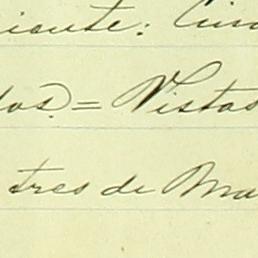 iente: Cin
dos) = Vistos
tres de Ma